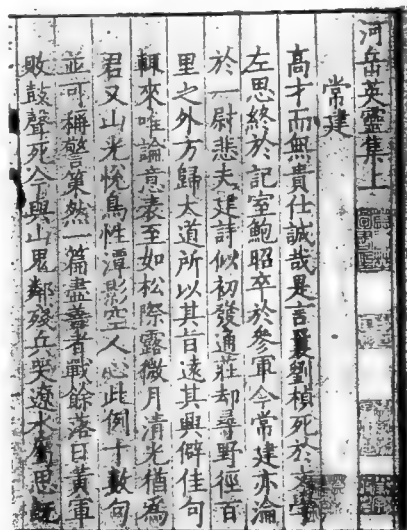 河岳英靈集上
常建
髙才而無貴仕誠哉是言曩劉楨死於文學
左思終於記室鮑昭卒於參軍今常建亦淪
於一尉悲夫建詩似初發通莊却尋野徑百
里之外方歸大道所以其旨遠其興僻佳句
輙來唯論意表至如松際露微月清光猶為
君又山光悅鳥性潭影空人心此例十數句
並可稱警策然一篇盡善者戰餘落日黃軍
敗鼓聲死今與山鬼鄰殘兵哭遼水屬思旣